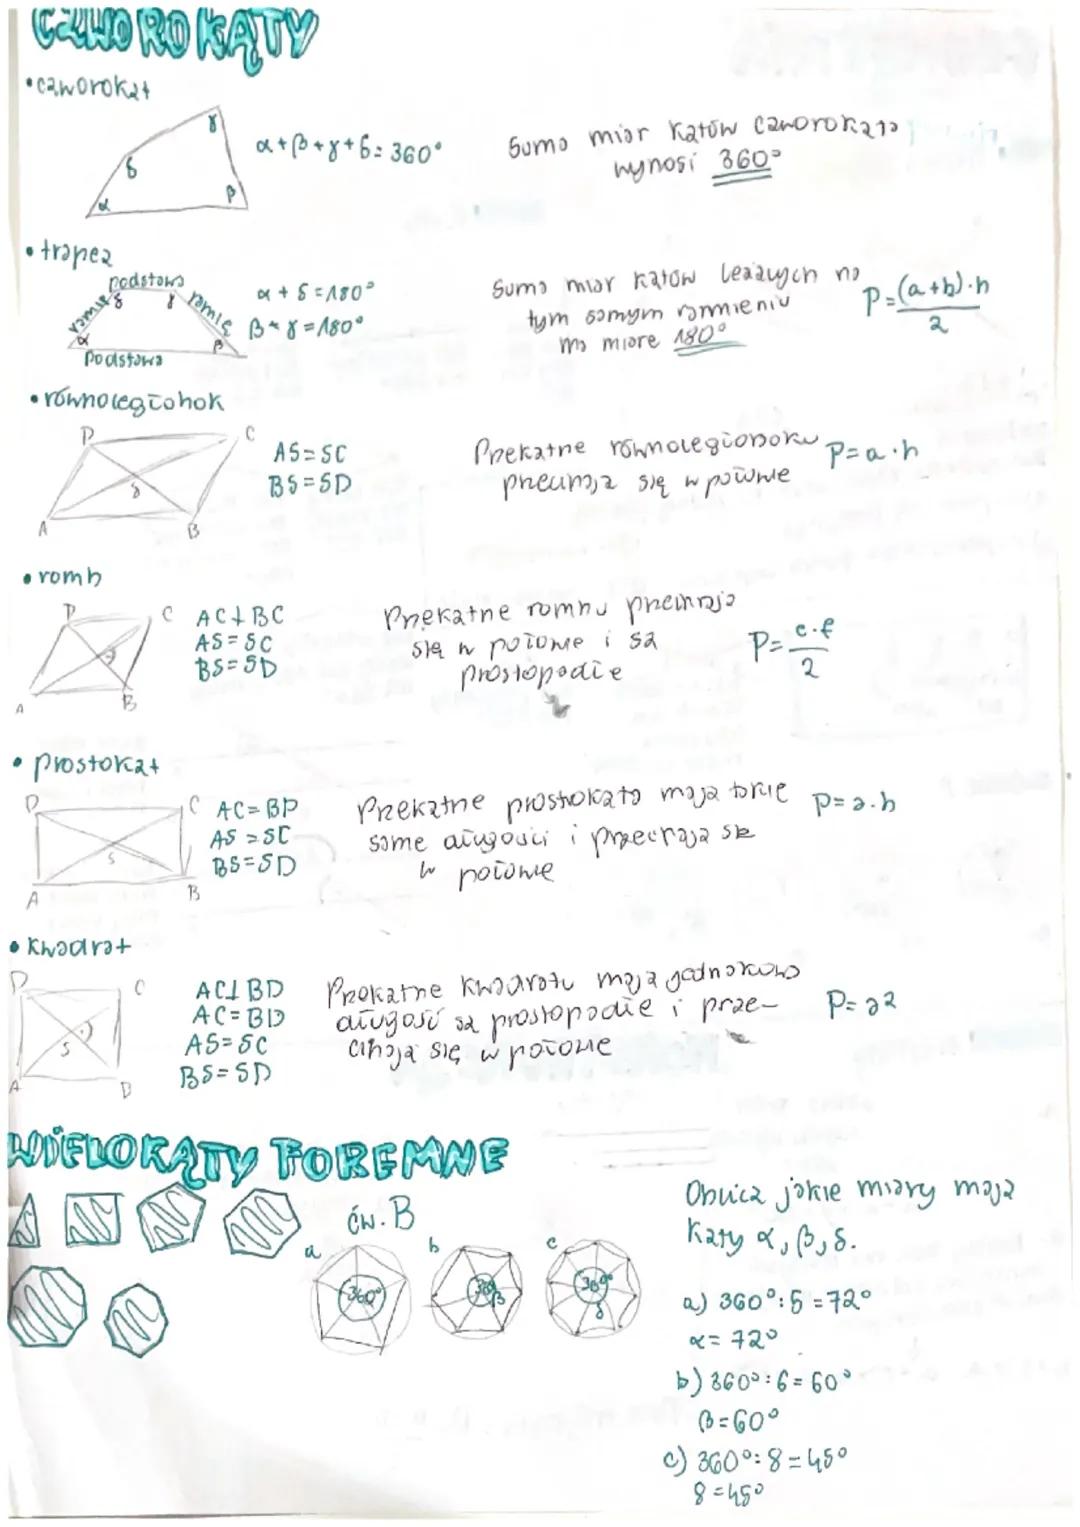 CZWOROKĄTY
•czworokąt
δ γ α β
α+β+γ+δ=360°
Suma miar kątów czworokąta
wynosi 360°
•trapez
podstawa
ramię δ γ ramię
α β
Podstawa
α + δ =180°
β + γ =180°
Suma miar kątów leżących na
tym samym ramieniu
ma miarę 180°
P=(a+b)·h
2
•równoległobok
D C
S
A B
AS=SC
BS=SD
Przekątne równoległoboku
przecinają się w połowie
P=a·h
•romb
D C
A B
AC⊥BC
AS=SC
BS=SD
Przekątne rombu przecinają
się w połowie i są
prostopadłe
P=e·f
2
•prostokąt
D C
S
A B
AC=BD
AS=SC
BS=SD
Przekątne prostokąta mają takie
same długości i przecinają się
w połowie
P=a·b
•kwadrat
D C
S
A B
AC⊥BD
AC=BD
AS=SC
BS=SD
Przekątne kwadratu mają jednakową
długość są prostopadłe i prze-
cinają się w połowie
P=a2
WIELOKĄTY FOREMNE
ćw. B
a b c
360° 360° β 360° δ
Oblicz jakie miary mają
kąty α, β, δ.
a) 360°:5=72°
α= 72°
b) 360°:6=60°
β=60°
c) 360°:8=45°
δ=45°